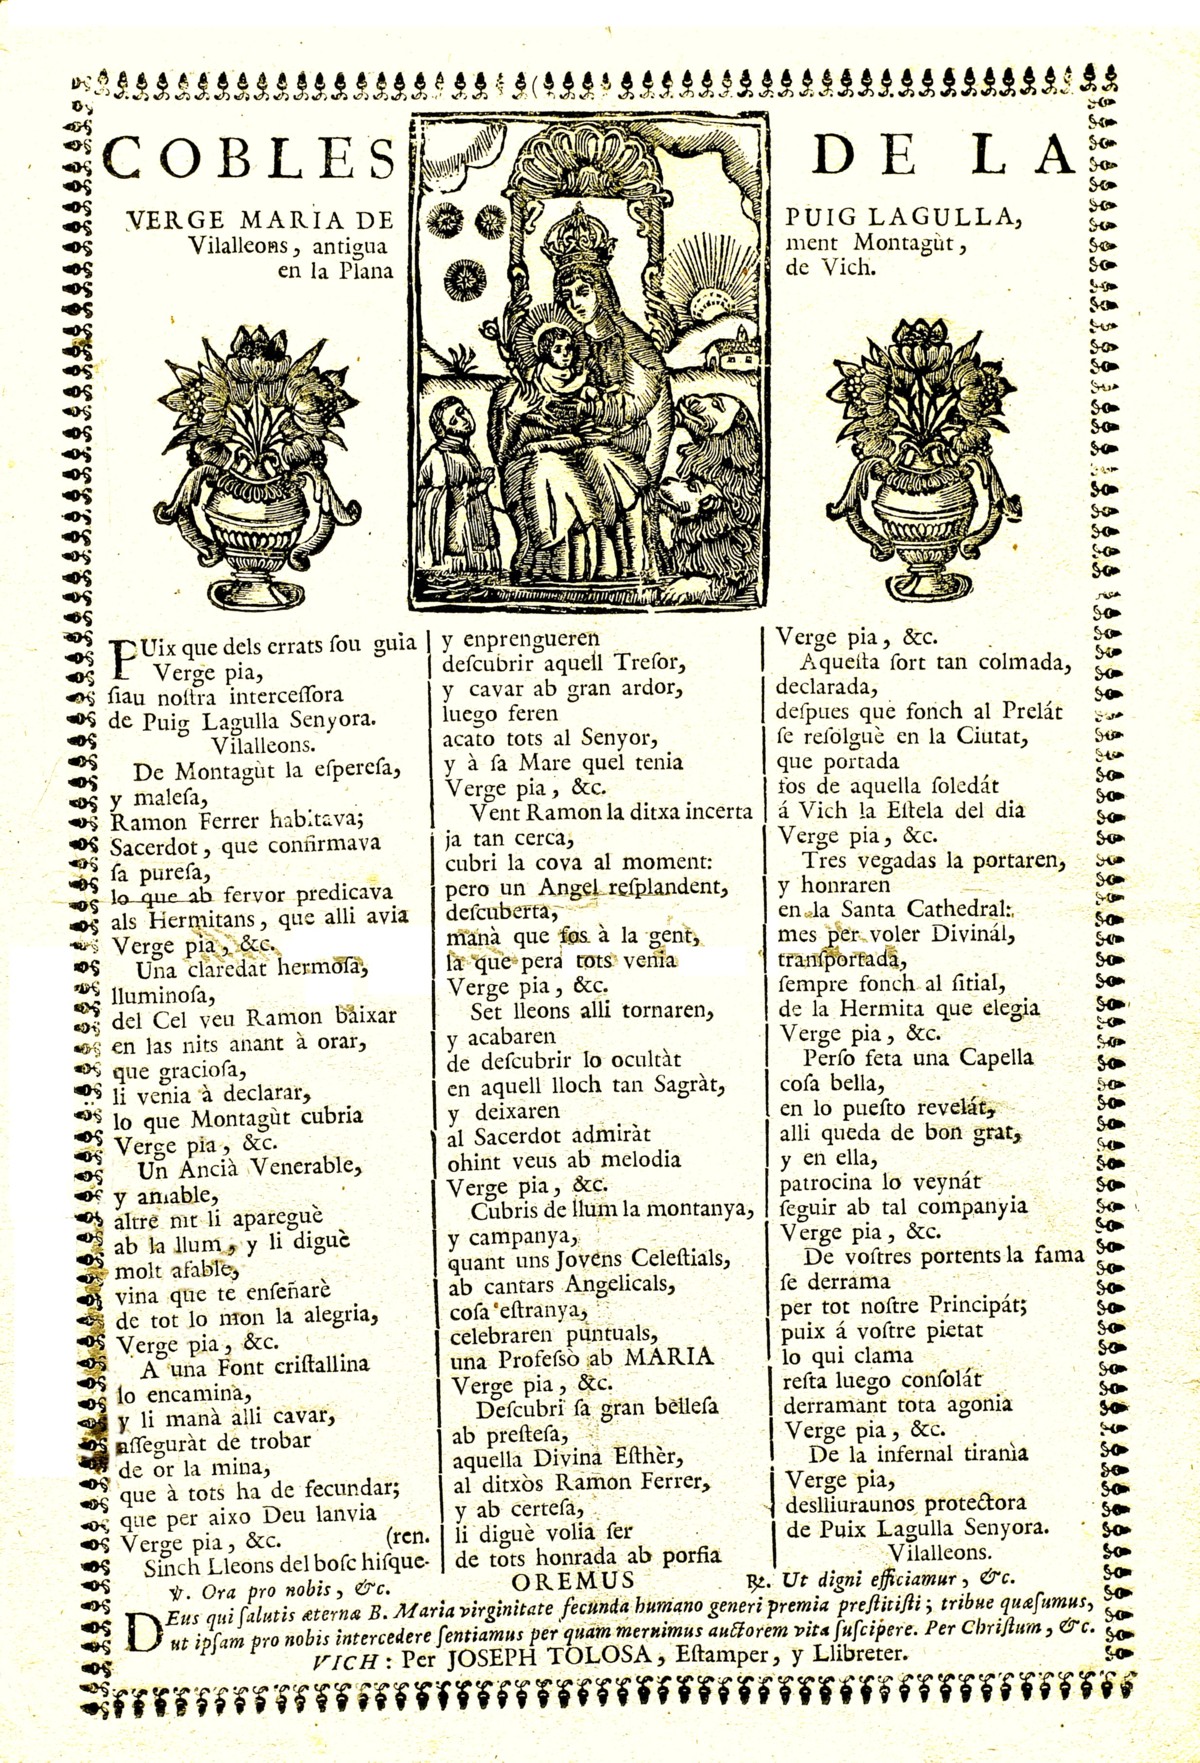 COBLES DE LA
VERGE MARIA DE PUIG LAGULLA,
Vilalleons, antigua ment Montagùt,
en la Plana de Vich.
PUix que dels errats ſou guia
Verge pia,
ſiau noſtra interceſſora
de Puig Lagulla Senyora.
Vilalleons.
De Montagùt la eſpereſa,
y maleſa,
Ramon Ferrer habitava;
Sacerdot, que confirmava
ſa pureſa,
lo que ab fervor predicava
als Hermitans, que alli avia
Verge pia, &c.
Una claredat hermoſa,
lluminoſa,
del Cel veu Ramon baixar
en las nits anant à orar,
que gracioſa,
li venia à declarar,
lo que Montagùt cubria
Verge pia, &c.
Un Ancià Venerable,
y amable,
altre nit li apareguè
ab la llum, y li diguè
molt afable,
vina que te enſeñarè
de tot lo mon la alegria,
Verge pia, &c.
A una Font criſtallina
lo encamina,
y li manà alli cavar,
aſſeguràt de trobar
de or la mina,
que à tots ha de fecundar;
que per aixo Deu lanvia
Verge pia, &c. (ren.
Sinch Lleons del boſc hiſque-
y enprengueren
deſcubrir aquell Treſor,
y cavar ab gran ardor,
luego feren
acato tots al Senyor,
y à ſa Mare quel tenia
Verge pia, &c.
Vent Ramon la ditxa incerta
ja tan cerca,
cubri la cova al moment:
pero un Angel reſplandent,
deſcuberta,
manà que fos à la gent,
la que pera tots venia
Verge pia, &c.
Set lleons alli tornaren,
y acabaren
de deſcubrir lo ocultàt
en aquell lloch tan Sagràt,
y deixaren
al Sacerdot admiràt
ohint veus ab melodia
Verge pia, &c.
Cubris de llum la montanya,
y campanya,
quant uns Jovens Celeſtials,
ab cantars Angelicals,
coſa eſtranya,
celebraren puntuals,
una Profeſsò ab MARIA
Verge pia, &c.
Deſcubri ſa gran belleſa
ab preſteſa,
aquella Divina Eſthèr,
al ditxòs Ramon Ferrer,
y ab certeſa,
li diguè volia ſer
de tots honrada ab porfia
Verge pia, &c.
Aqueſta ſort tan colmada,
declarada,
deſpues que fonch al Prelát
ſe reſolguè en la Ciutat,
que portada
fos de aquella ſoledát
á Vich la Eſtela del dia
Verge pia, &c.
Tres vegadas la portaren,
y honraren
en la Santa Cathedral:
mes per voler Divinál,
tranſportada,
ſempre fonch al ſitial,
de la Hermita que elegia
Verge pia, &c.
Perſo feta una Capella
coſa bella,
en lo pueſto revelát,
alli queda de bon grat,
y en ella,
patrocina lo veynát
ſeguir ab tal companyia
Verge pia, &c.
De voſtres portents la fama
ſe derrama
per tot noſtre Principát;
puix á voſtre pietat
lo qui clama
reſta luego conſolát
derramant tota agonia
Verge pia, &c.
De la infernal tirania
Verge pia,
deslliuraunos protectora
de Puix Lagulla Senyora.
Vilalleons.
℣. Ora pro nobis, &c. OREMUS ℟. Ut digni efficiamur, &c.
DEus qui ſalutis æternæ B. Maria virginitate fecunda humano generi premia preſtitiſti; tribue quæſumus,
ut ipſam pro nobis intercedere ſentiamus per quam meruimus auctorem vitæ ſuſcipere. Per Chriſtum, &c.
VICH: Per JOSEPH TOLOSA, Eſtamper, y Llibreter.